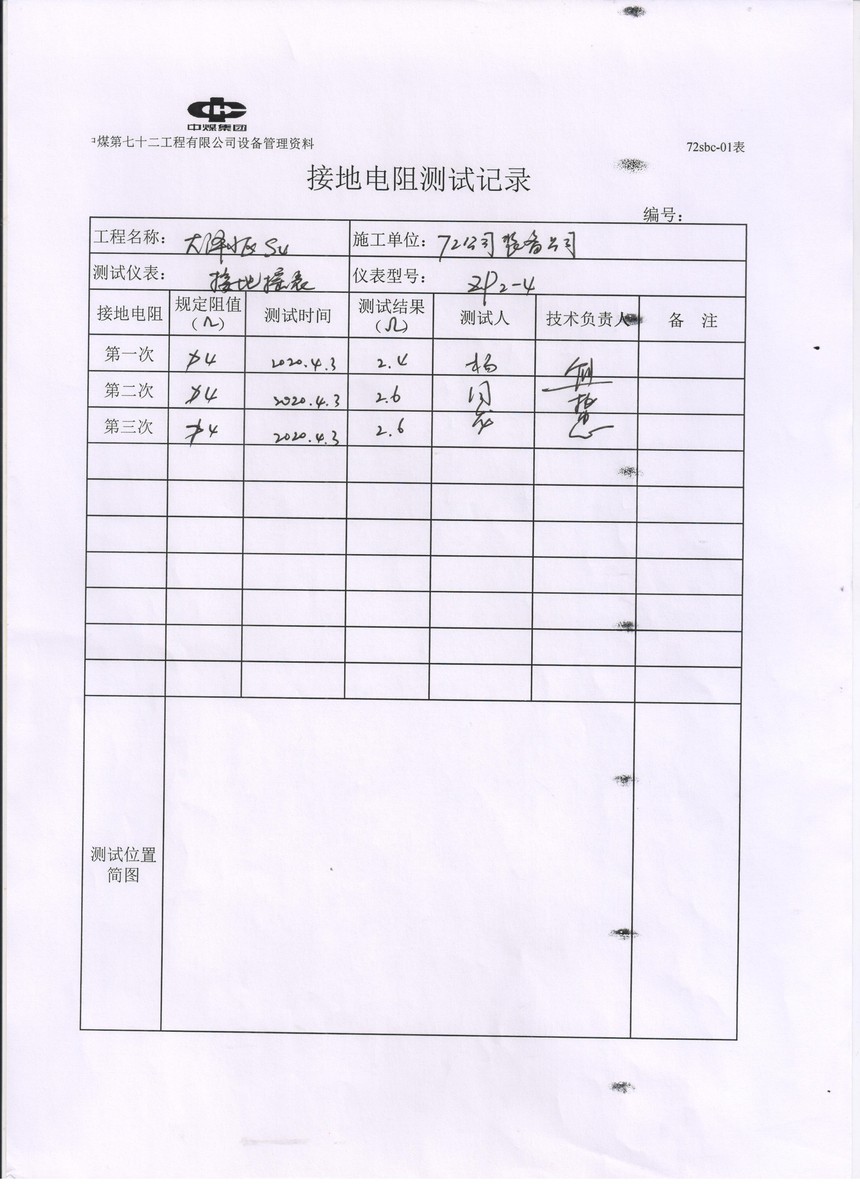 中煤集团
中煤第七十二工程有限公司设备管理资料
72sbc-01表
接地电阻测试记录
编号：
工程名称：
施工单位： 72公司装备公司
测试仪表： 接地摇表
仪表型号： ZP2-4
接地电阻 规定阻值（Ω） 测试时间 测试结果（Ω） 测试人 技术负责人 备 注
第一次 ≯4 2020.4.3 2.4 杨
第二次 ≯4 2020.4.3 2.6
第三次 ≯4 2020.4.3 2.6
测试位置
简图